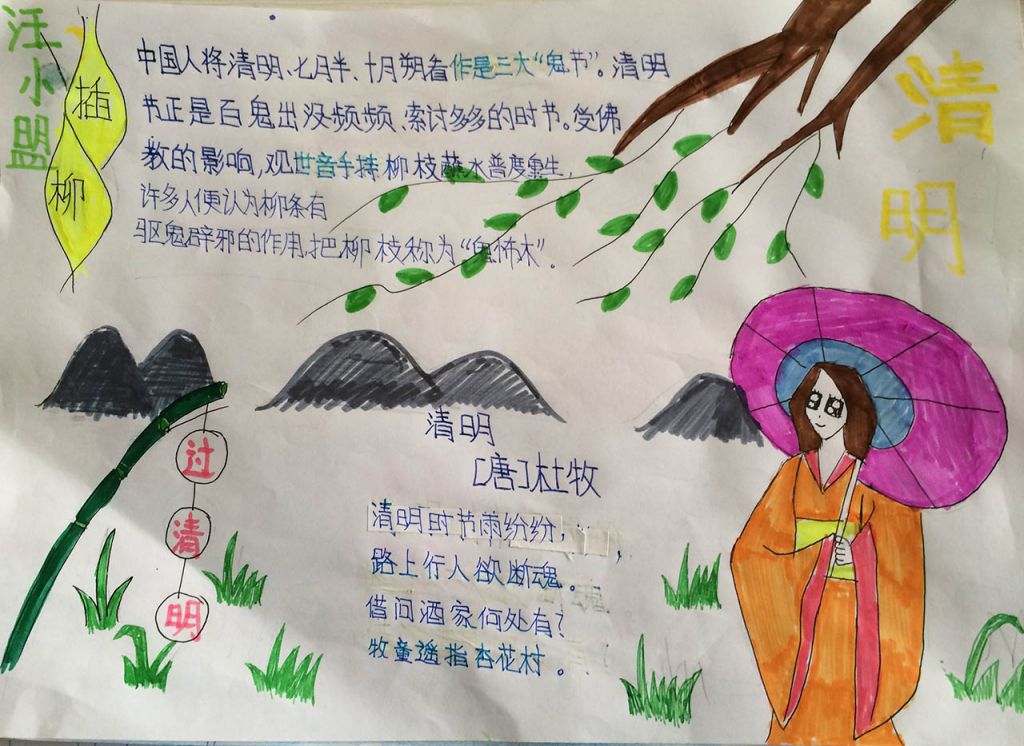 汪小盟
插柳
中国人将清明、七月半、十月朔看作是三大“鬼节”。清明
节正是百鬼出没频频、索讨多多的时节。受佛
教的影响,观世音手持柳枝蘸水普度众生,
许多人便认为柳条有
驱鬼辟邪的作用,把柳枝称为“鬼怖木”。
清明
清明
[唐]杜牧
清明时节雨纷纷,
路上行人欲断魂。
借问酒家何处有?
牧童遥指杏花村。
过清明